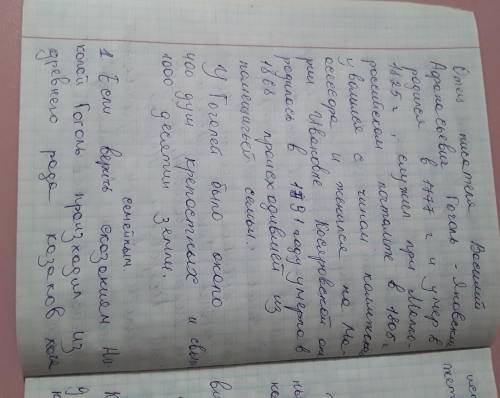 Отец писателя Василий
Афанасьевич Гоголь-Яновский
родился в 1777 г и умер в
1825 г, служил при Малло-
российском постамте в 1805 г
уволился с чином коллежско
асессора и женился на Ма-
рии Ивановне Косяровской он
родилась в 1791 году умерла в
1868 происходившей из
помещичьей семьи.
У Гоголей было около
400 душ крепостных и свы
1000 десятин земли.
семейным
1 Если верить сказаниям Ни
колай Гоголь произходил из
древнего рода казаков хок